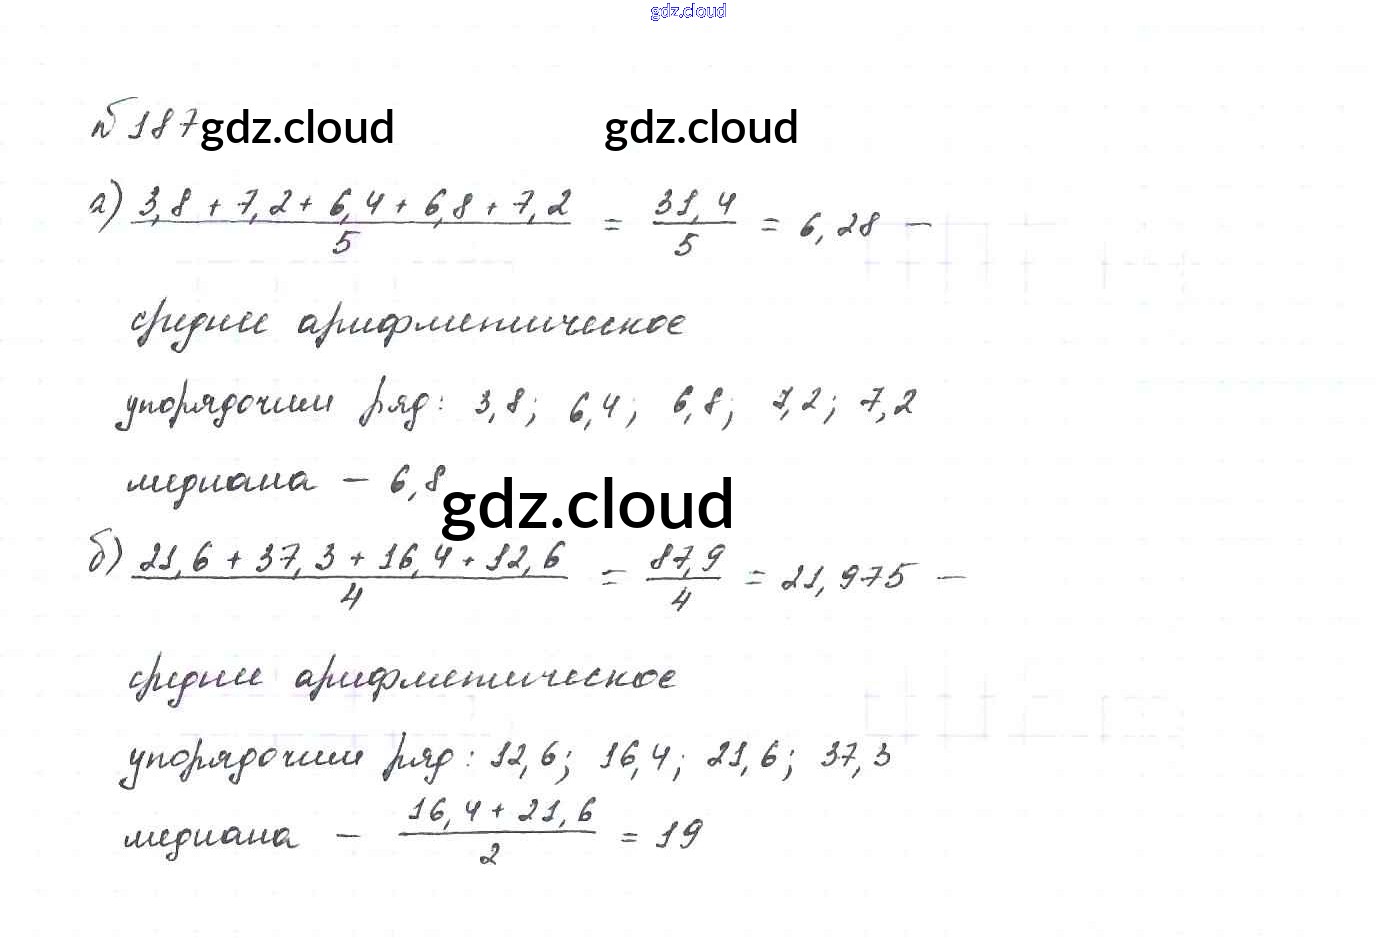 gdz.cloud
№187 gdz.cloud gdz.cloud
а) (3,8 + 7,2 + 6,4 + 6,8 + 7,2)/5 = 31,4/5 = 6,28 —
среднее арифметическое
упорядочим ряд: 3,8; 6,4; 6,8; 7,2; 7,2
медиана — 6,8
gdz.cloud
б) (21,6 + 37,3 + 16,4 + 12,6)/4 = 87,9/4 = 21,975 —
среднее арифметическое
упорядочим ряд: 12,6; 16,4; 21,6; 37,3
медиана — (16,4 + 21,6)/2 = 19